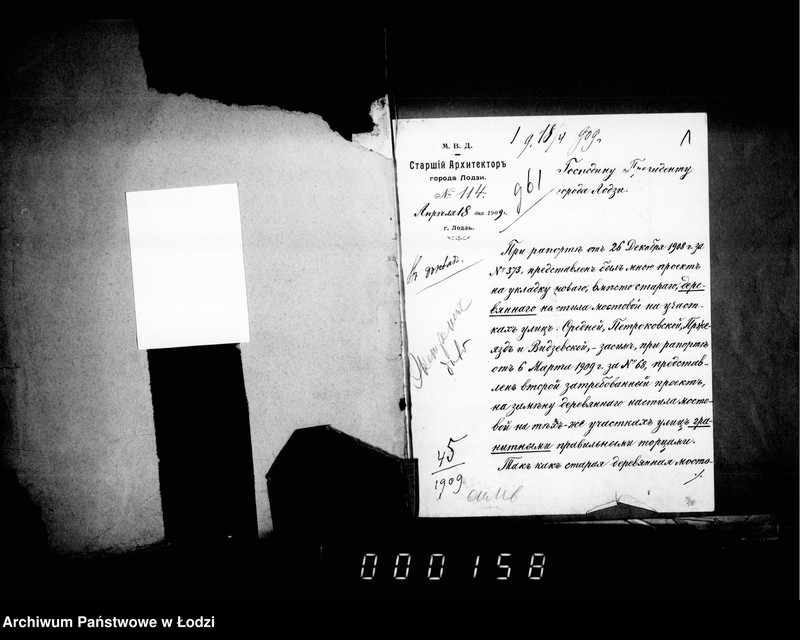 1
М. В. Д.
Старшій Архитекторъ
города Лодзи.
№ 114.
Апрѣля 18 дня 1909 г.
г. Лодзь.
961
Господину Президенту
города Лодзи.
При рапортѣ отъ 26 Декабря 1908 г. за
№ 373, представленъ былъ мною проектъ
на укладку новаго, вмѣсто стараго, дере-
вяннаго настила мостовой на участ-
кахъ улицъ: Средней, Петроковской, Прое-
ѣздъ и Видзевской, - засимъ, при рапортѣ
отъ 6 Марта 1909 г. за № 68, представ-
ленъ второй затребованный проектъ,
на замѣну деревяннаго настила мосто-
вой на тѣхъ-же участкахъ улицъ гра-
нитными правильными торцами.
Такъ какъ старая деревянная мосто-
45
1909
000158
Archiwum Państwowe w Łodzi